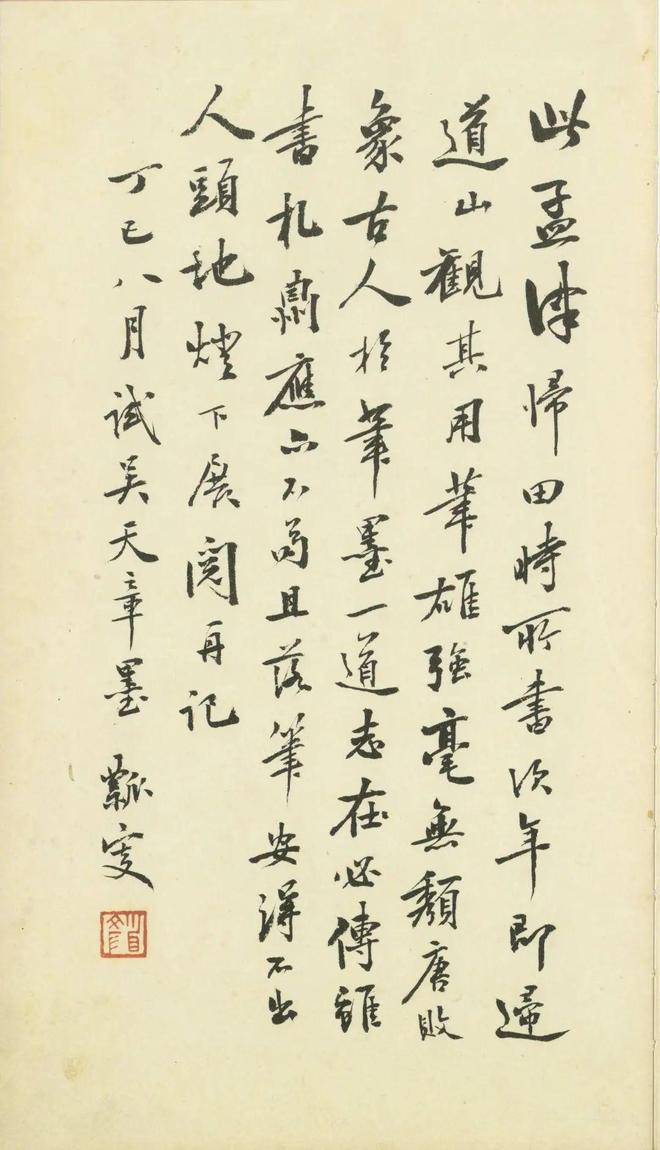 此孟津歸田時所書次年即歸
道山觀其用筆雄強毫無頹唐敗
象古人於筆墨一道志在必傳雖
書札應亦不苟且落筆安得不出
人頭地燈下展閱再記
丁巳八月試吳天章墨 瓢叟